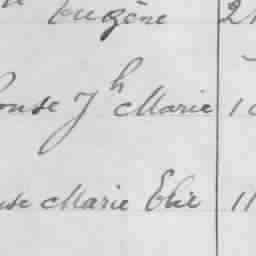 Eugène 2
onse Jh Marie 1
se Marie Elie 11